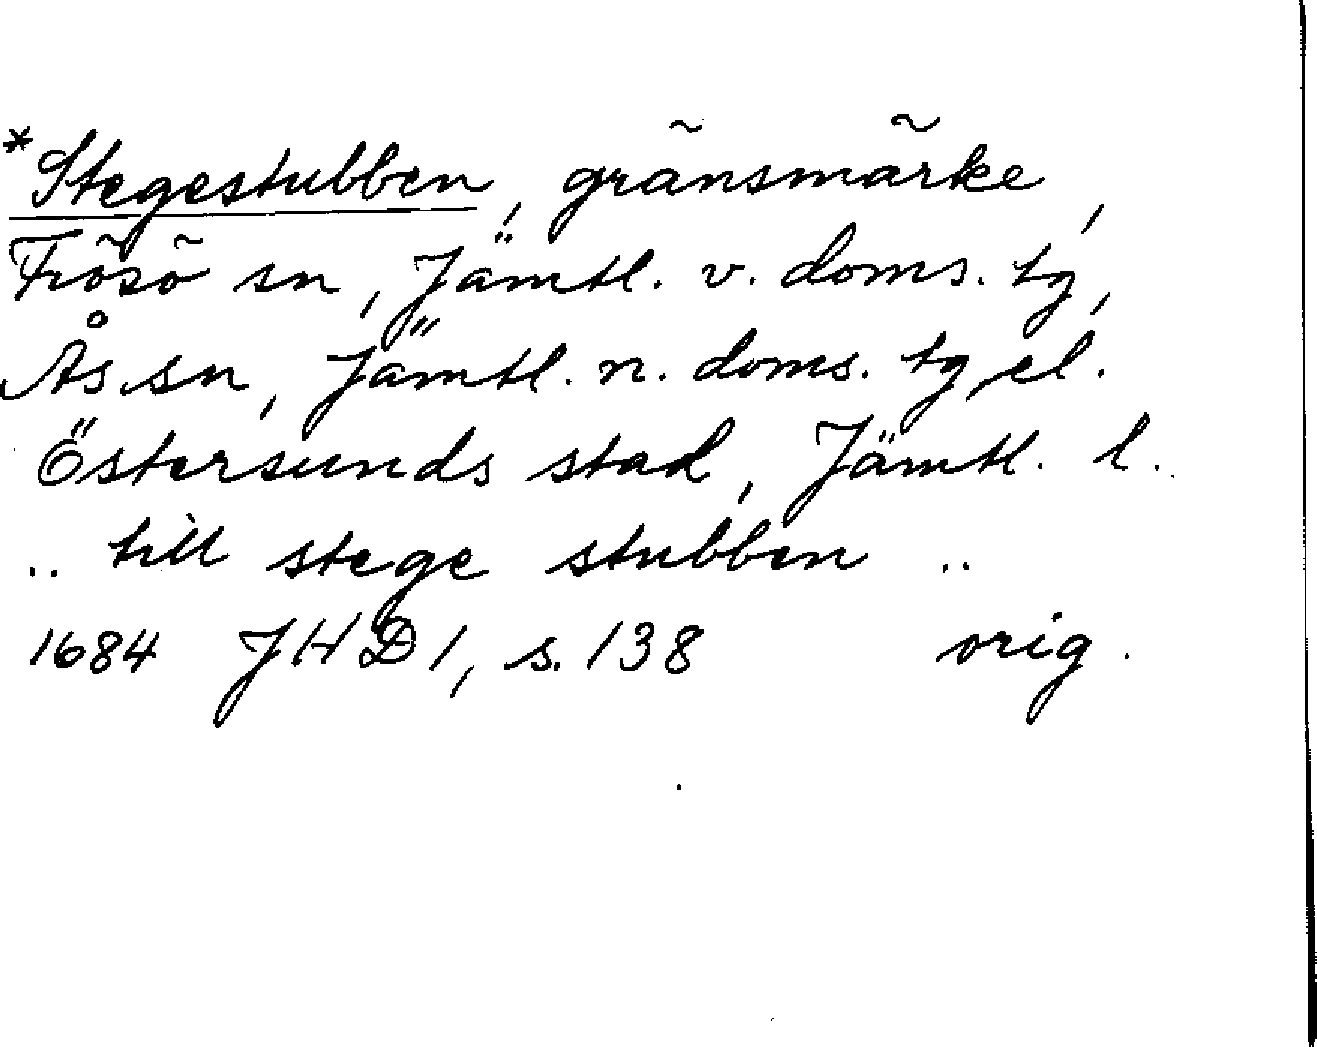 *Stegestubben, gränsmärke,
Frösö sn, Jämtl. v. doms. tg,
Ås sn, Jämtl. n. doms. tg el.
Östersunds stad, Jämtl. l.
.. till stege stubben ..
1684 JHD 1, s. 138 orig.